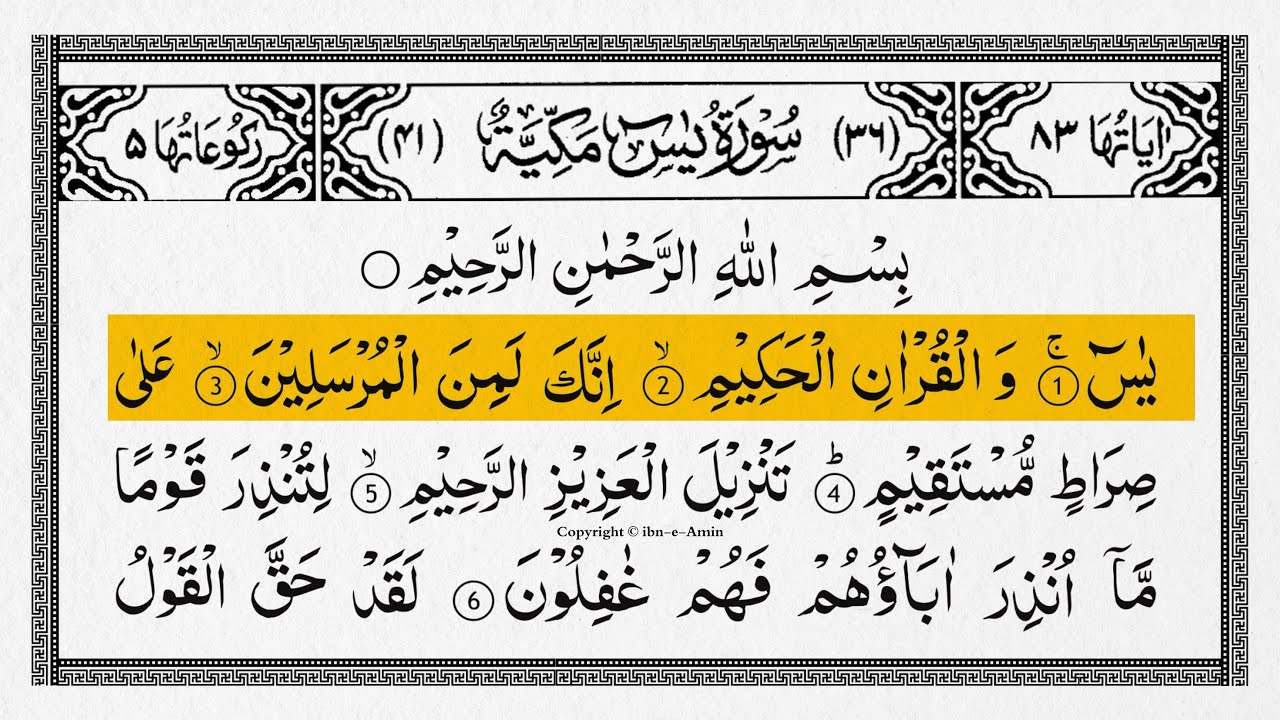 اٰيَاتُهَا ٨٣ (٣٦) سُوْرَةُ يٰسٓ مَكِّيَّةٌ (٤١) رُكُوْعَاتُهَا ٥
بِسْمِ اللّٰهِ الرَّحْمٰنِ الرَّحِيْمِ ○
يٰسٓ ۚ ① وَ الْقُرْاٰنِ الْحَكِيْمِ ۙ ② اِنَّكَ لَمِنَ الْمُرْسَلِيْنَ ۙ ③ عَلٰى
صِرَاطٍ مُّسْتَقِيْمٍ ؕ ④ تَنْزِيْلَ الْعَزِيْزِ الرَّحِيْمِ ۙ ⑤ لِتُنْذِرَ قَوْمًا
Copyright © ibn-e-Amin
مَّاۤ اُنْذِرَ اٰبَآؤُهُمْ فَهُمْ غٰفِلُوْنَ ⑥ لَقَدْ حَقَّ الْقَوْلُ